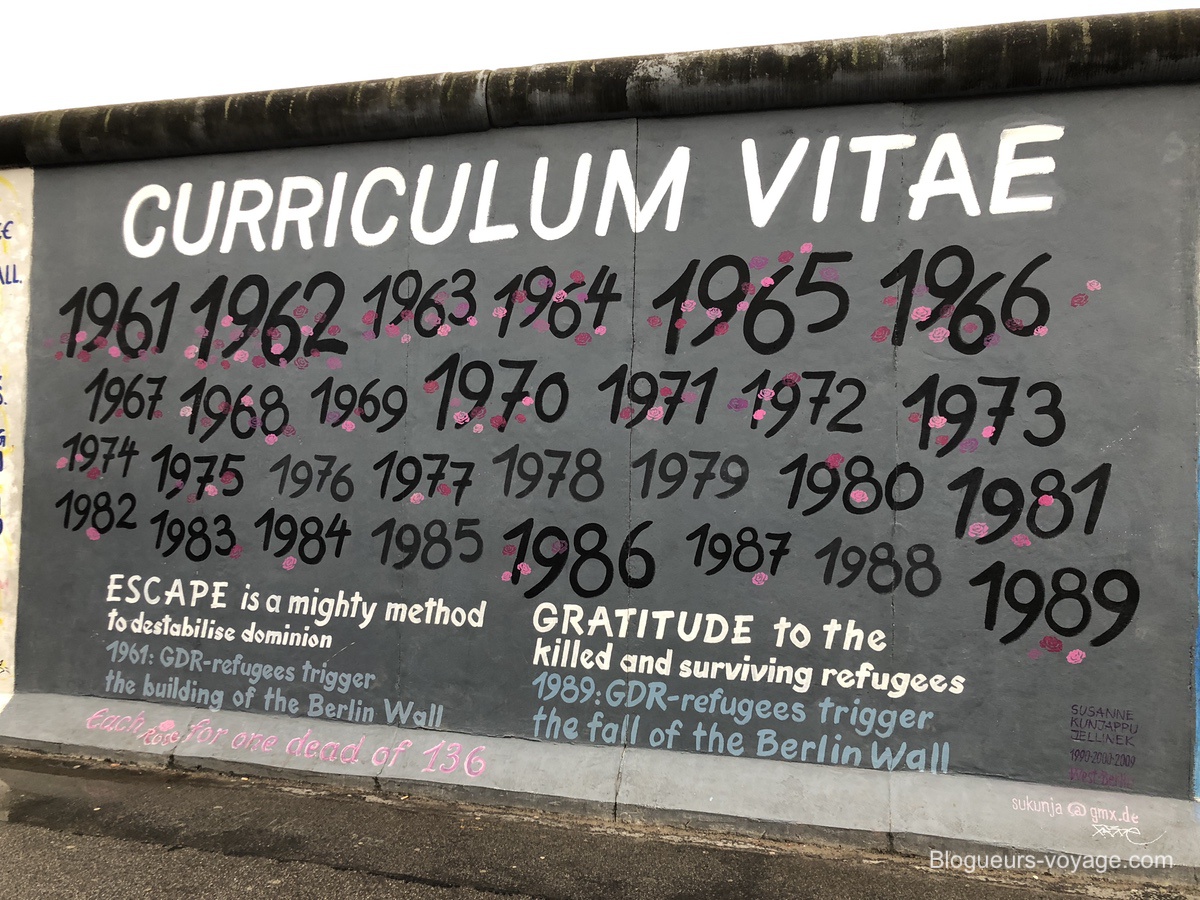 CURRICULUM VITAE
1961 1962 1963 1964 1965 1966
1967 1968 1969 1970 1971 1972 1973
1974 1975 1976 1977 1978 1979 1980 1981
1982 1983 1984 1985 1986 1987 1988 1989
ESCAPE is a mighty method
to destabilise dominion
1961: GDR-refugees trigger
the building of the Berlin Wall
GRATITUDE to the
killed and surviving refugees
1989: GDR-refugees trigger
the fall of the Berlin Wall
Each rose for one dead of 136
SUSANNE
KUNJAPPU
JELLINEK
1990-2000-2009
West-Berlin
sukunja@gmx.de
ALL.
Blogueurs-voyage.com